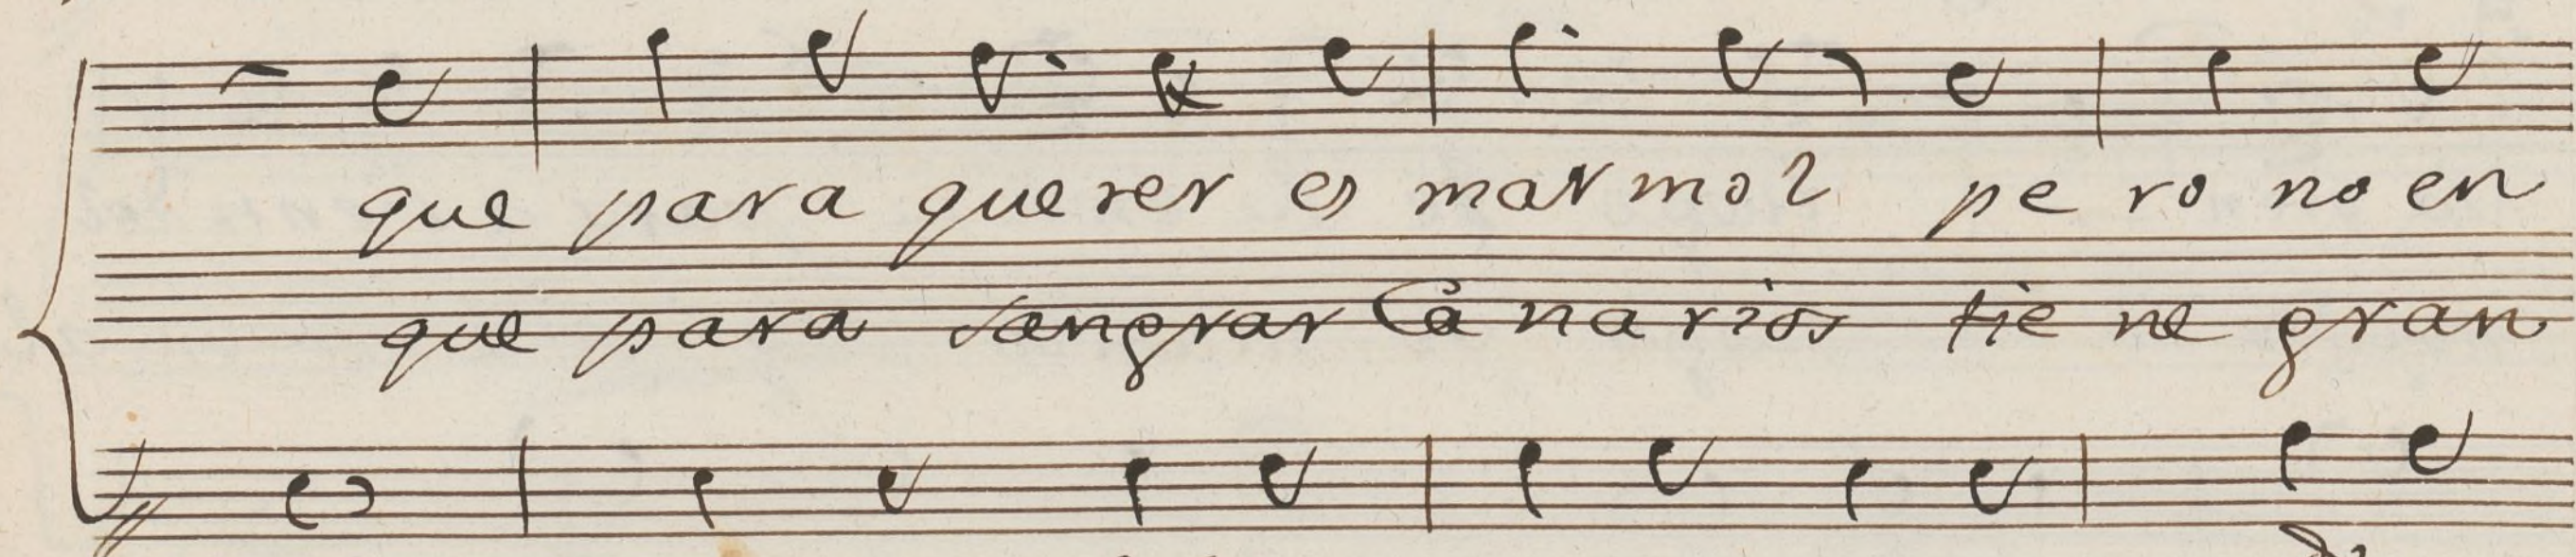 que para querer es marmol pero no en
que para sangrar Canarios tiene gran